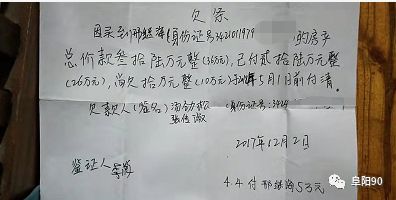 欠条
因买到邢继海(身份证号342101979 的房产
总价款叁拾陆万元整(36万元),已付贰拾陆万元整
(26万元),尚欠拾万元整(10万元)于 年5月1日前付清。
欠款人(签名) 身份证号:3424
2017年12月2日
鉴证人
4.4付邢继海53元
阜阳90